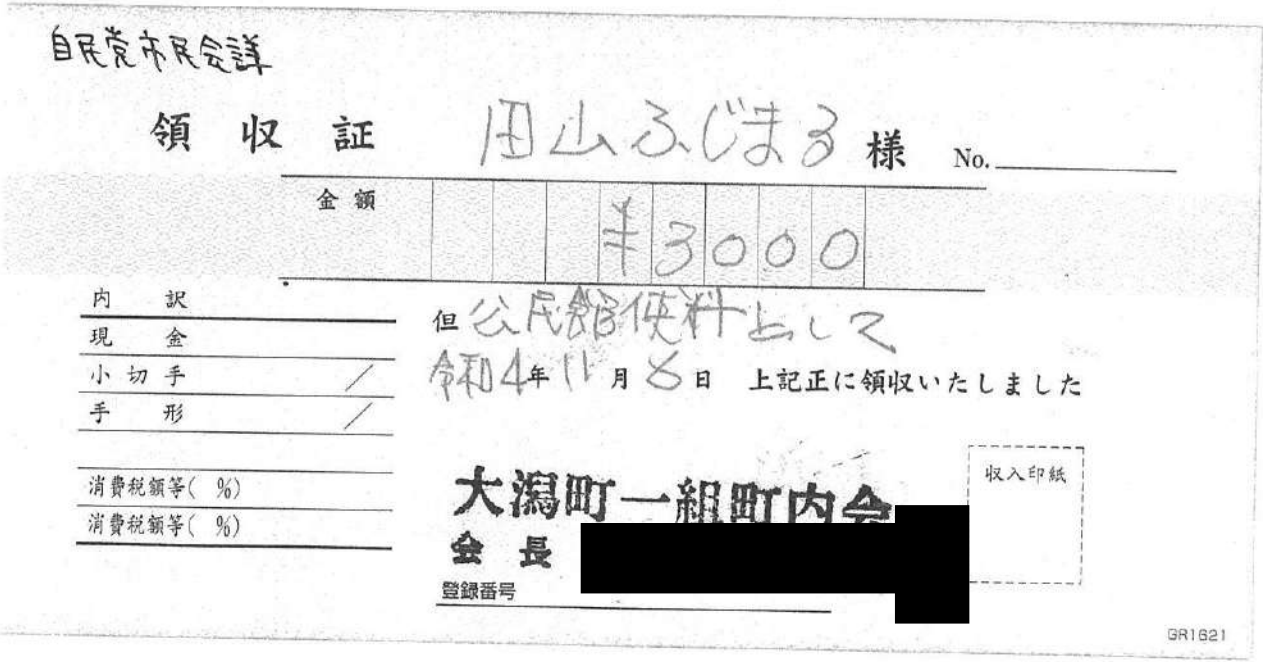 自民党市民会議
領収証 田山ふじまる 様 No.
金額 ¥3000
内訳
現金
小切手 /
手形 /
消費税額等( %)
消費税額等( %)
但 公民館使料として
令和4年11月8日 上記正に領収いたしました
収入印紙
大潟町一組町内会
会長
登録番号
GR1621